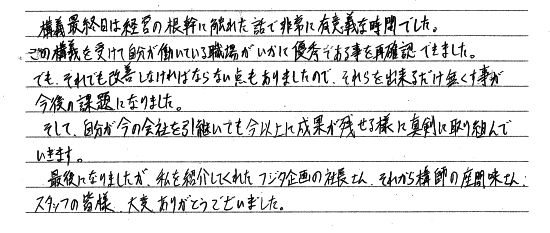 講義最終日は経営の根幹に触れた話で非常に有意義な時間でした。
この講義を受けて自分が働いている職場がいかに優秀である事を再確認できました。
でも、それでも改善しなければならない点もありましたので、それらを出来るだけ無くす事が
今後の課題になりました。
そして、自分が今の会社を引継いでも今以上に成果が残せる様に真剣に取り組んで
いきます。
最後になりましたが、私を紹介してくれたフジタ企画の社長さん、それから講師の座間味さん、
スタッフの皆様、大変ありがとうございました。